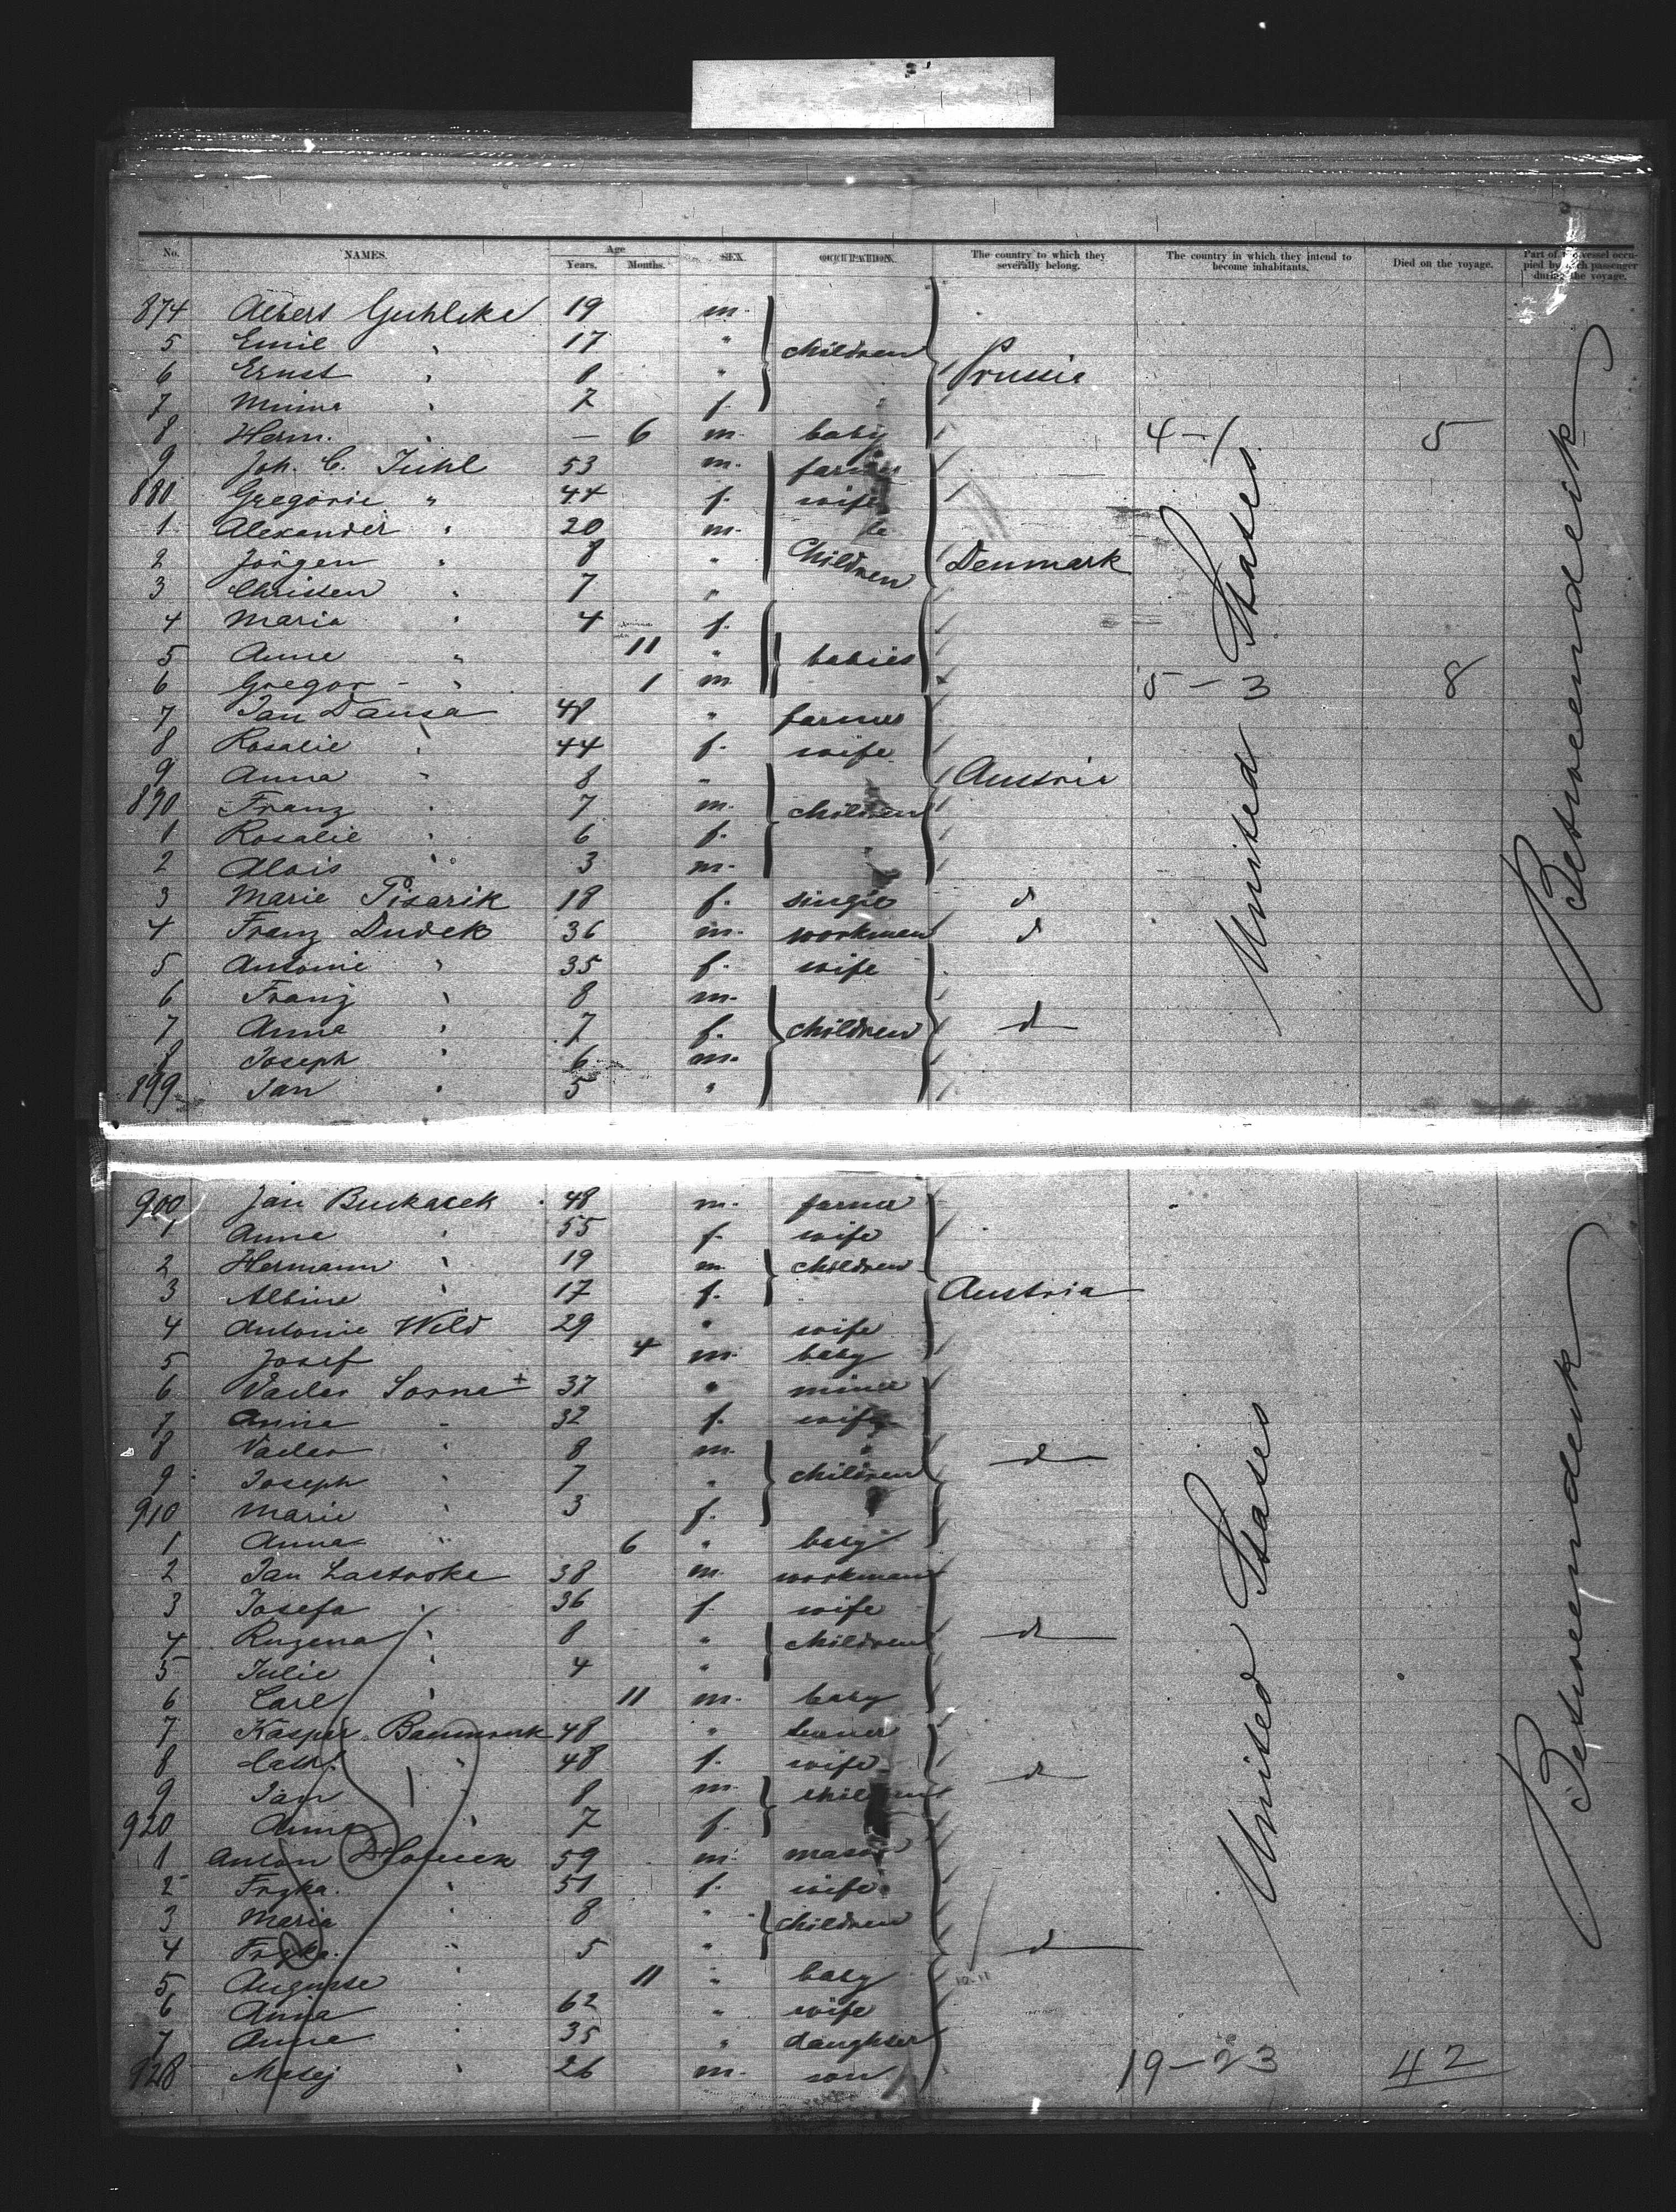 No. NAMES. Age Years. Months. SEX. OCCUPATION. The country to which they severally belong. The country in which they intend to become inhabitants. Died on the voyage. Part of the vessel occupied by each passenger during the voyage.
874 Albert Guhlcke 19 m.
5 Emil " 17 " children
6 Ernst " 8 " Prussia
7 Minna " 7 f.
8 Herm. " — 6 m. baby 4-1 5
9 Joh. C. Juhl 53 m. farmer
880 Gregorie " 44 f. wife
1 Alexander " 20 m.
2 Jörgen " 8 " Children Denmark
3 Christen " 7 "
4 Maria " 4 f.
5 Anne " 11 " babies
6 Gregor " 1 m 5-3 8
7 Jan Dansa 48 " farmer
8 Rosalie " 44 f. wife
9 Anna " 8 " Austria
890 Franz " 7 m. children
1 Rosalie " 6 f.
2 Alois " 3 m.
3 Marie Pisarik 18 f. single d
4 Franz Dudek 36 m. workman d
5 Antonie " 35 f. wife
6 Franz " 8 m.
7 Anna " 7 f. children d
8 Joseph " 6 m.
899 Jan " 5 "
United States
Betweendeck
900 Jan Buckacek 48 m. farmer
1 Anna " 55 f. wife
2 Hermann " 19 m. children
3 Albine " 17 f. Austria
4 Antonie Wild 29 " wife
5 Josef 4 m. baby
6 Vaclav Sorna + 37 " miner
7 Anna " 32 f. wife
8 Vaclav " 8 m. d
9 Joseph " 7 " children
910 Marie " 3 f.
1 Anna " 6 " baby
2 Jan Lastooka 38 m. workman
3 Josefa " 36 f. wife
4 Ruzena " 8 " children d
5 Julie " 4 "
6 Carl " 11 m. baby
7 Kaspar 48 "
8 Cath. " 48 f. wife d
9 Jan 8 m. children
920 Anna " 7 f.
1 Anton 59 m. mason
2 Frzka. " 51 f. wife
3 Maria 8 " children
4 Frzka. " 5 " d
5 Auguste 11 " baby
6 Anna " 62 " wife
7 Anna " 35 " daughter
928 Matej " 26 m. son 19-23 42
United States
Betweendeck